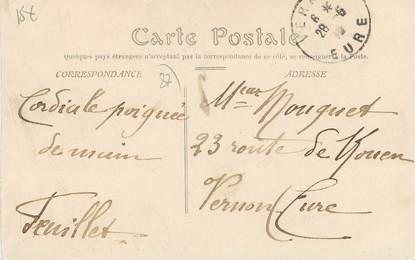 15€
Carte Postale
Quelques pays étrangers n'acceptant pas la correspondance de ce côté, se renseigner à la Poste.
CORRESPONDANCE
ADRESSE
Cordiale poignée
de main
Feuillet
Mouquet
23 route de Rouen
Vernon Eure
EURE